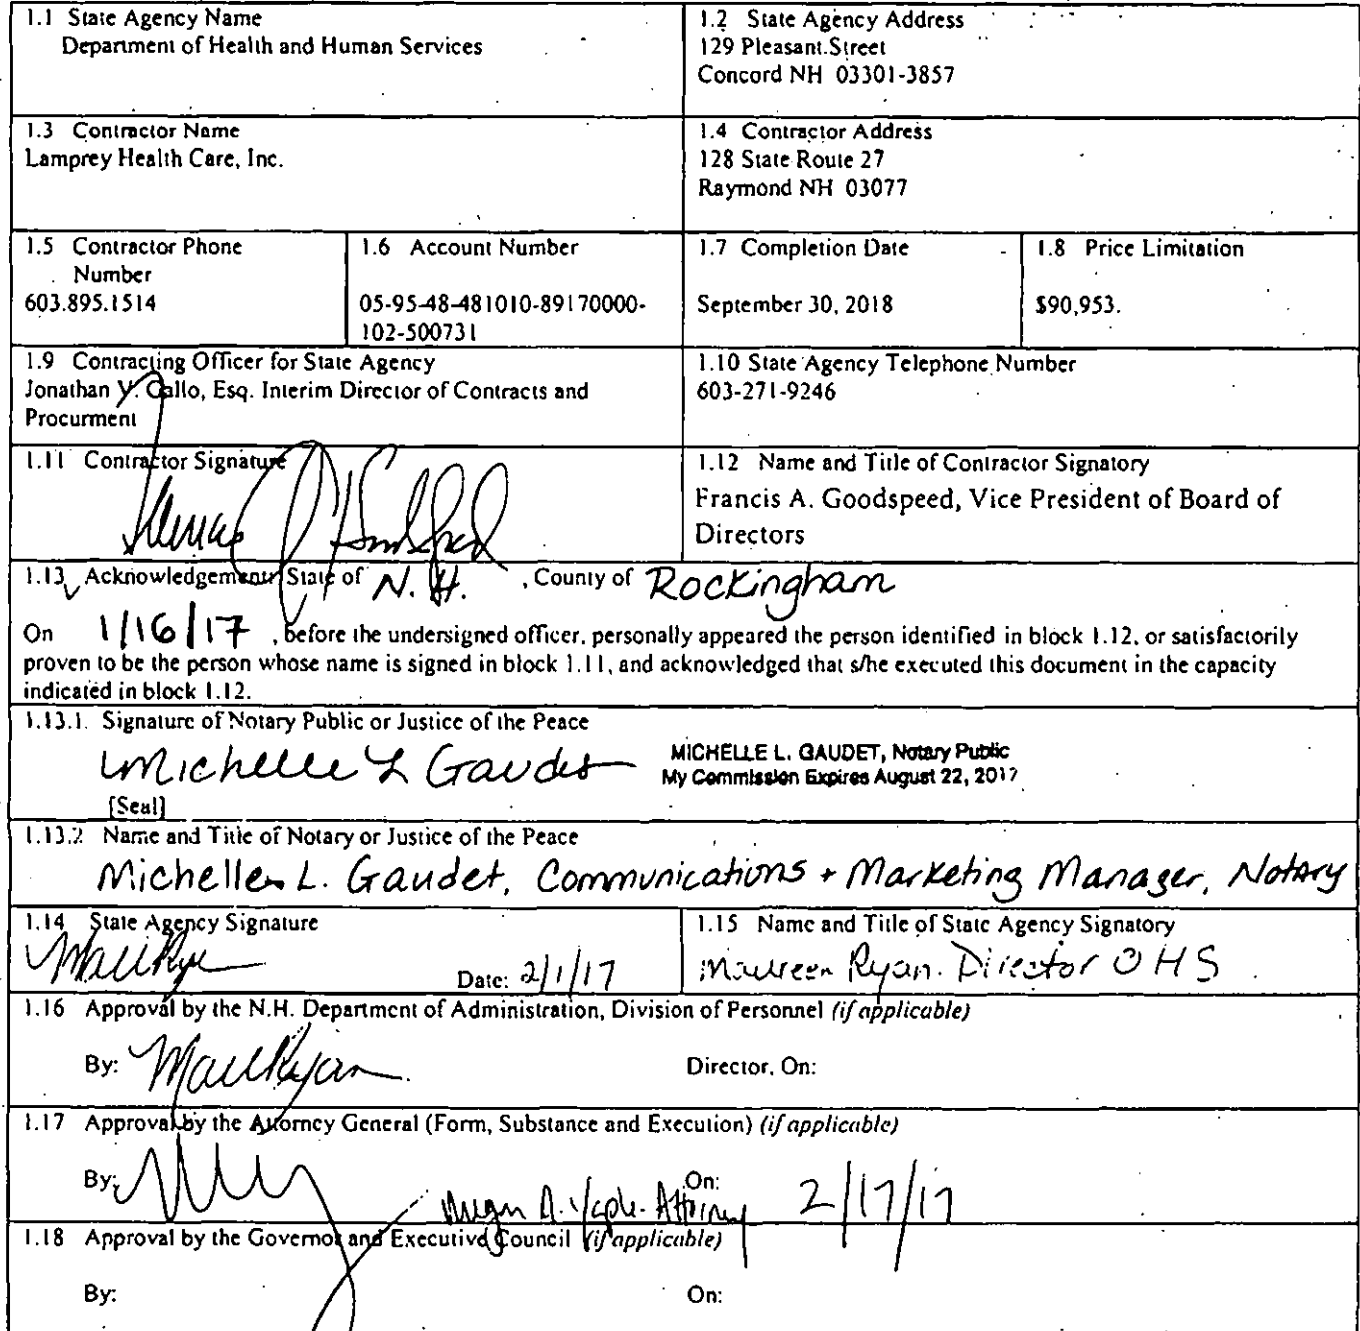 1.1 State Agency Name
Department of Health and Human Services
1.2 State Agency Address
129 Pleasant Street
Concord NH 03301-3857
1.3 Contractor Name
Lamprey Health Care, Inc.
1.4 Contractor Address
128 State Route 27
Raymond NH 03077
1.5 Contractor Phone
Number
603.895.1514
1.6 Account Number
05-95-48-481010-89170000-
102-500731
1.7 Completion Date
September 30, 2018
1.8 Price Limitation
$90,953.
1.9 Contracting Officer for State Agency
Jonathan V. Gallo, Esq. Interim Director of Contracts and
Procurment
1.10 State Agency Telephone Number
603-271-9246
1.11 Contractor Signature
1.12 Name and Title of Contractor Signatory
Francis A. Goodspeed, Vice President of Board of
Directors
1.13 Acknowledgement: State of N.H. , County of Rockingham
On 1/16/17 , before the undersigned officer, personally appeared the person identified in block 1.12, or satisfactorily
proven to be the person whose name is signed in block 1.11, and acknowledged that s/he executed this document in the capacity
indicated in block 1.12.
1.13.1 Signature of Notary Public or Justice of the Peace
Michelle L Gaudet
MICHELLE L. GAUDET, Notary Public
My Commission Expires August 22, 2017
[Seal]
1.13.2 Name and Title of Notary or Justice of the Peace
Michelle L. Gaudet, Communications + Marketing Manager, Notary
1.14 State Agency Signature
Date: 2/1/17
1.15 Name and Title of State Agency Signatory
Maureen Ryan. Director OHS
1.16 Approval by the N.H. Department of Administration, Division of Personnel (if applicable)
By:
Director, On:
1.17 Approval by the Attorney General (Form, Substance and Execution) (if applicable)
By:
Attorney
On: 2/17/17
1.18 Approval by the Governor and Executive Council (if applicable)
By:
On: